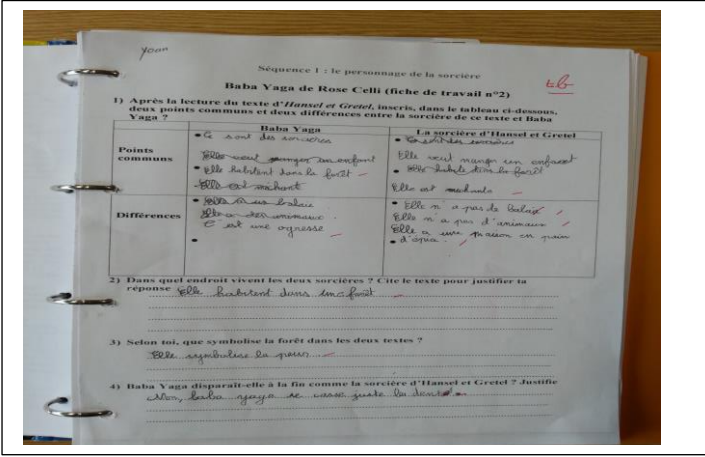 yoann
Séquence 1 : le personnage de la sorcière
tb
Baba Yaga de Rose Celli (fiche de travail n°2)
1) Après la lecture du texte d'Hansel et Gretel, inscris, dans le tableau ci-dessous,
deux points communs et deux différences entre la sorcière de ce texte et Baba
Yaga ?
Baba Yaga
La sorcière d'Hansel et Gretel
Points
communs
• Ce sont des sorcières
Elle veut manger un enfant
• Elle habitent dans la forêt
Elle est méchant
• Ce sont des sorcières
Elle veut manger un enfant
• Elle habite dans la forêt
Elle est méchante
Différences
• Elle a un balai
Elle a des animaux
C'est une ogresse
•
• Elle n'a pas de balai
Elle n'a pas d'animaux
Elle a une maison en pain
• d'épice.
2) Dans quel endroit vivent les deux sorcières ? Cite le texte pour justifier ta
réponse Elle habitent dans une forêt
3) Selon toi, que symbolise la forêt dans les deux textes ?
Elle symbolise la peur
4) Baba Yaga disparaît-elle à la fin comme la sorcière d'Hansel et Gretel ? Justifie
Non, baba yaga se casse juste les dents